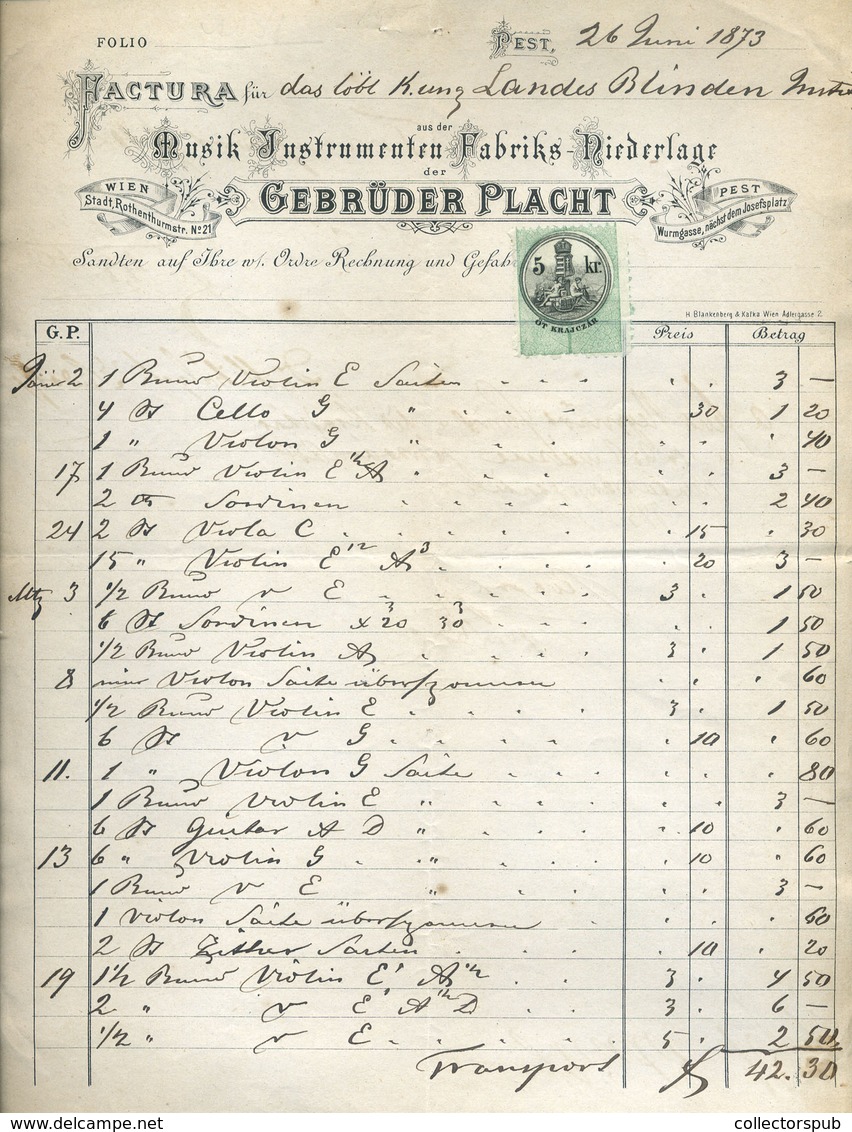 FOLIO
PEST, 26 Juni 1873
FACTURA für das löbl K. ung Landes Blinden
aus der
Musik Instrumenten Fabriks-Niederlage
der
GEBRÜDER PLACHT
WIEN
Stadt, Rothenthurmstr. No 21
PEST
Wurmgasse, nächst dem Josefsplatz
Sandten auf Ihre w/. Ordre Rechnung und Gefahr
5 kr.
ÖT KRAJCZÁR
H. Blankenberg & Kafka Wien Adlergasse 2.
G.P. Preis Betrag
2 1 Bund Violin E Saiten 3 —
4 St Cello G " 30 1 20
1 " Violon G " 40
17 1 Bund Violin E 1/2 A " 3 —
2 Sordinen 2 40
24 2 St Viola C 15 30
15 " Violin E 12 A 3 20 3 —
3 1/2 Bund v E 3 1 50
6 St Sordinen 3 20 3 30 1 50
1/2 Bund Violin A 3 1 50
8 Violon Saite 60
1/2 Bund Violin E 3 1 50
6 St v G 10 60
11. 1 " Violon G Saite 80
1 Bund Violin E " 3 —
6 St Guitar A D " 10 60
13 6 " Violin G " 10 60
1 Bund v E " 3 —
1 Violon Saite 60
2 St Zither Saiten 10 20
19 1 1/2 Bund Violin E 1 A 1/2 3 4 50
2 " v E 1 A 1/2 D 3 6 —
1/2 " v E 5 2 50
Transport f 42. 30
www.delcampe.net
collectorspub